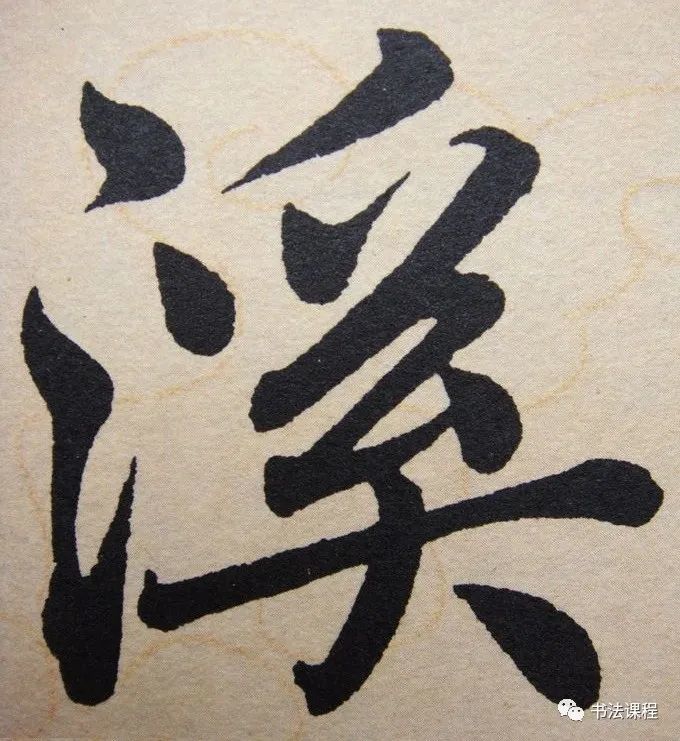 溪
书法课程